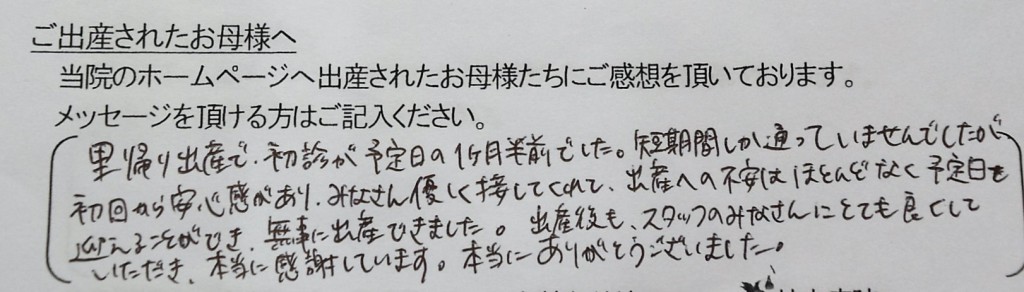 ご出産されたお母様へ
当院のホームページへ出産されたお母様たちにご感想を頂いております。
メッセージを頂ける方はご記入ください。
里帰り出産で、初診が予定日の1ヶ月半前でした。短期間しか通っていませんでしたが
初回から安心感があり、みなさん優しく接してくれて、出産への不安はほとんどなく予定日を
迎えることができ、無事に出産できました。出産後も、スタッフのみなさんにとても良くして
いただき、本当に感謝しています。本当にありがとうございました。